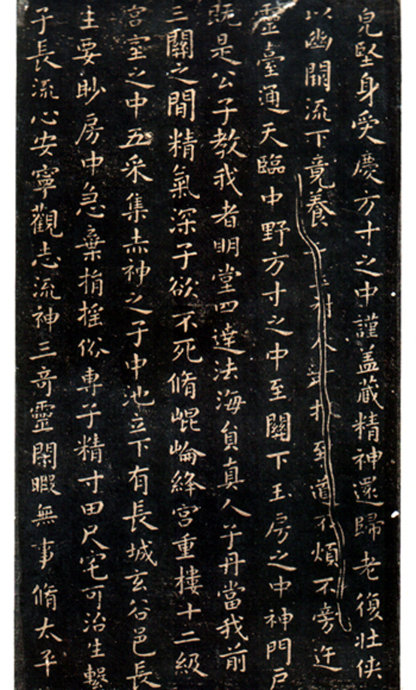 兒堅身受慶方寸之中謹盖藏精神還歸老復壯俠
以幽闕流下竟養至道不煩不旁迕
靈臺通天臨中野方寸之中至關下玉房之中神門戶
既是公子教我者明堂四達法海員真人子丹當我前
三關之間精氣深子欲不死脩崐崘絳宮重樓十二級
宮室之中五采集赤神之子中池立下有長城玄谷邑長
生要眇房中急棄捐搖俗專子精寸田尺宅可治生繫
子長流心安寧觀志流神三奇靈閑暇無事脩太平